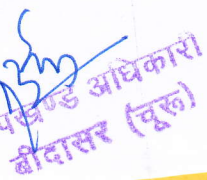 पखण्ड अधिकारी
बीदासर (चूरू)